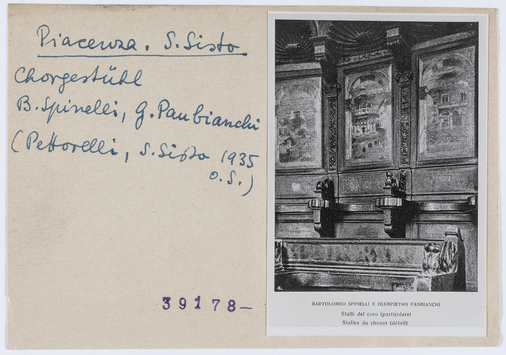 Piacenza. S. Sisto
Chorgestühl
B. Spinelli, G. Panbianchi
(Pettorelli, S. Sisto 1935
o. S.)
39178—
BARTOLOMEO SPINELLI E GIAMPIETRO PANBIANCHI
Stalli del coro (particolare)
Stalles du choeur (détail)